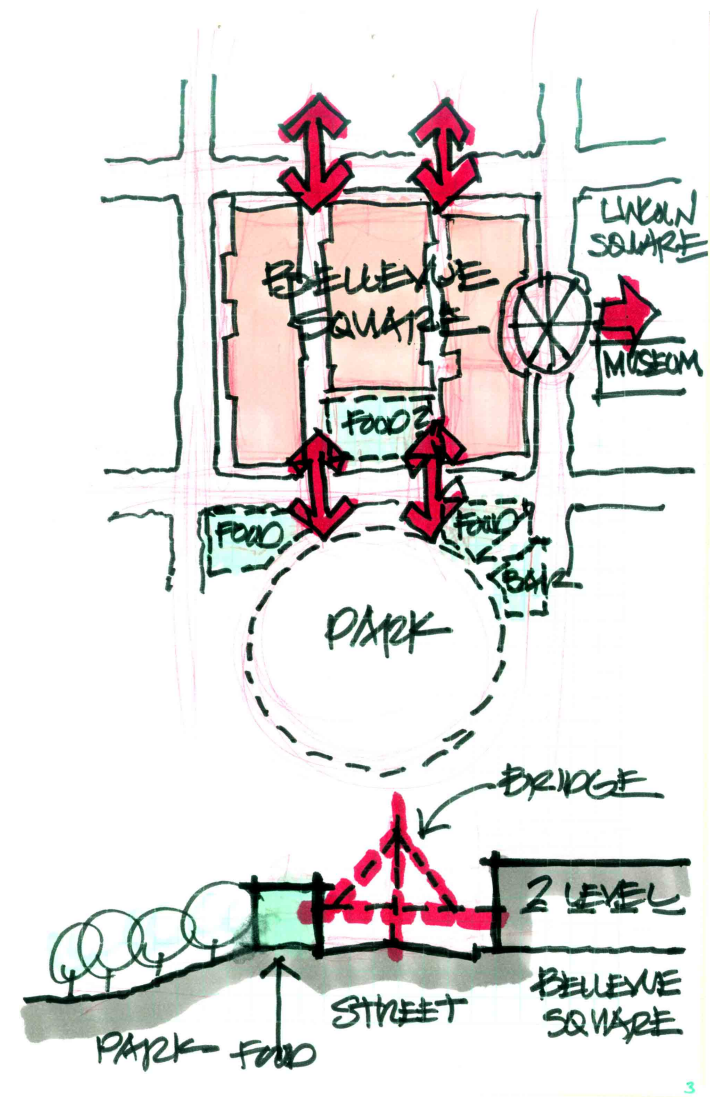 LINCOLN
SQUARE
BELLEVUE
SQUARE
MUSEUM
FOOD ?
FOOD
FOOD
BAR
PARK
BRIDGE
2 LEVEL
BELLEVUE
SQUARE
STREET
PARK
FOOD
3